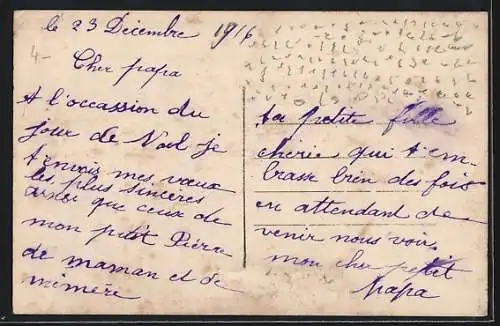 le 23 Décembre 1916
4-
Cher papa
A l'occassion du
jour de Noel je
t'envois mes vœux
les plus sincères
ainsi que ceux de
mon petit Pierre
de maman et de
mimère
ta petite fille
chérie qui t'em-
brasse bien des fois
en attendant de
venir nous voir,
mon cher petit
papa